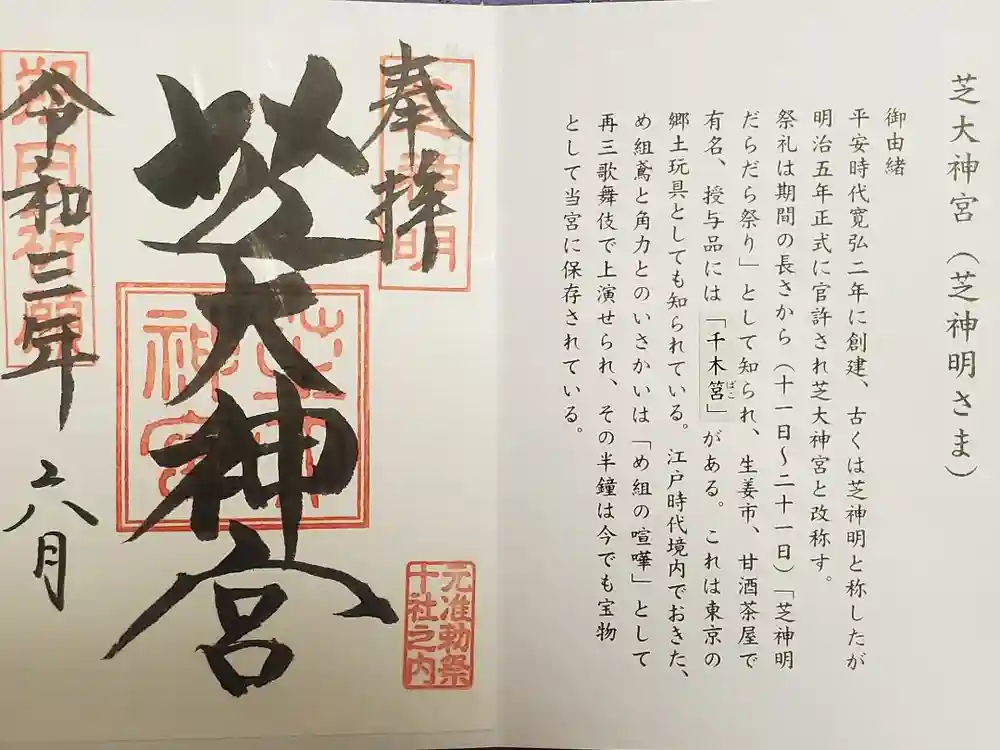 芝大神宮（芝神明さま）
御由緒
平安時代寛弘二年に創建、古くは芝神明と称したが
明治五年正式に官許され芝大神宮と改称す。
祭礼は期間の長さから（十一日～二十一日）「芝神明
だらだら祭り」として知られ、生姜市、甘酒茶屋で
有名、授与品には「千木筥」がある。これは東京の
ばこ
郷土玩具としても知られている。江戸時代境内でおきた、
め組鳶と角力とのいさかいは「め組の喧嘩」として
再三歌舞伎で上演せられ、その半鐘は今でも宝物
として当宮に保存されている。
奉拝
芝大神宮
令和三年
六月
元准勅祭
十社之内